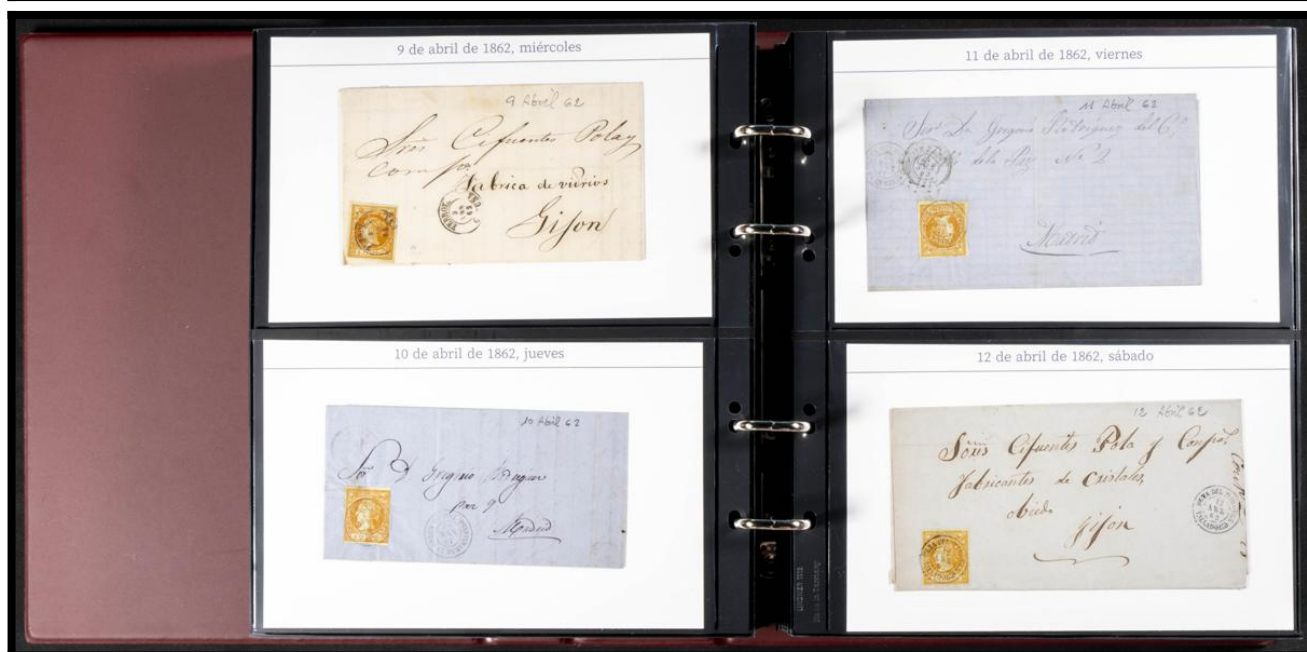 9 de abril de 1862, miércoles
9 Abril 62
Sres Cifuentes Pola y
Compª
Fabrica de vidrios
Gijon
FERROL
10 de abril de 1862, jueves
10 Abril 62
Sor D Gregorio
Madrid
11 de abril de 1862, viernes
11 Abril 62
Sor Dn Gregorio Rodriguez del
de la Paz No 2
Madrid
12 de abril de 1862, sábado
12 Abril 62
Sores Cifuentes Pola y Compª
Fabricantes de Cristales,
obiedo
Gijon